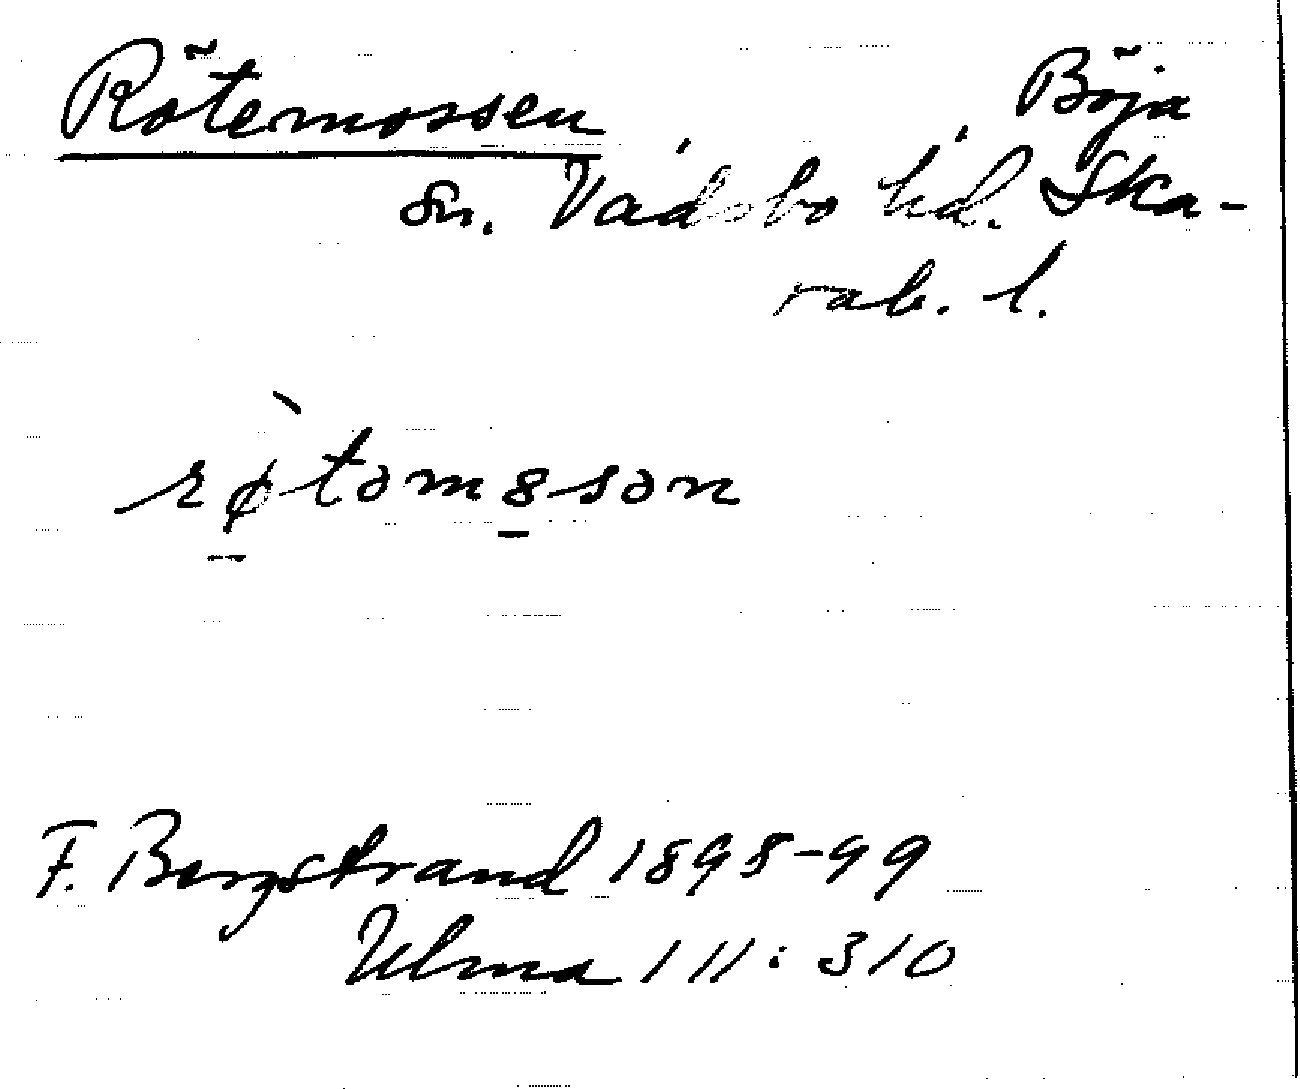 Rötemossen Böja
sn. Vadsbo hd. Ska-
rab. l.
rø̀tamossan
F. Bergstrand 1898-99
Ulma 111:310